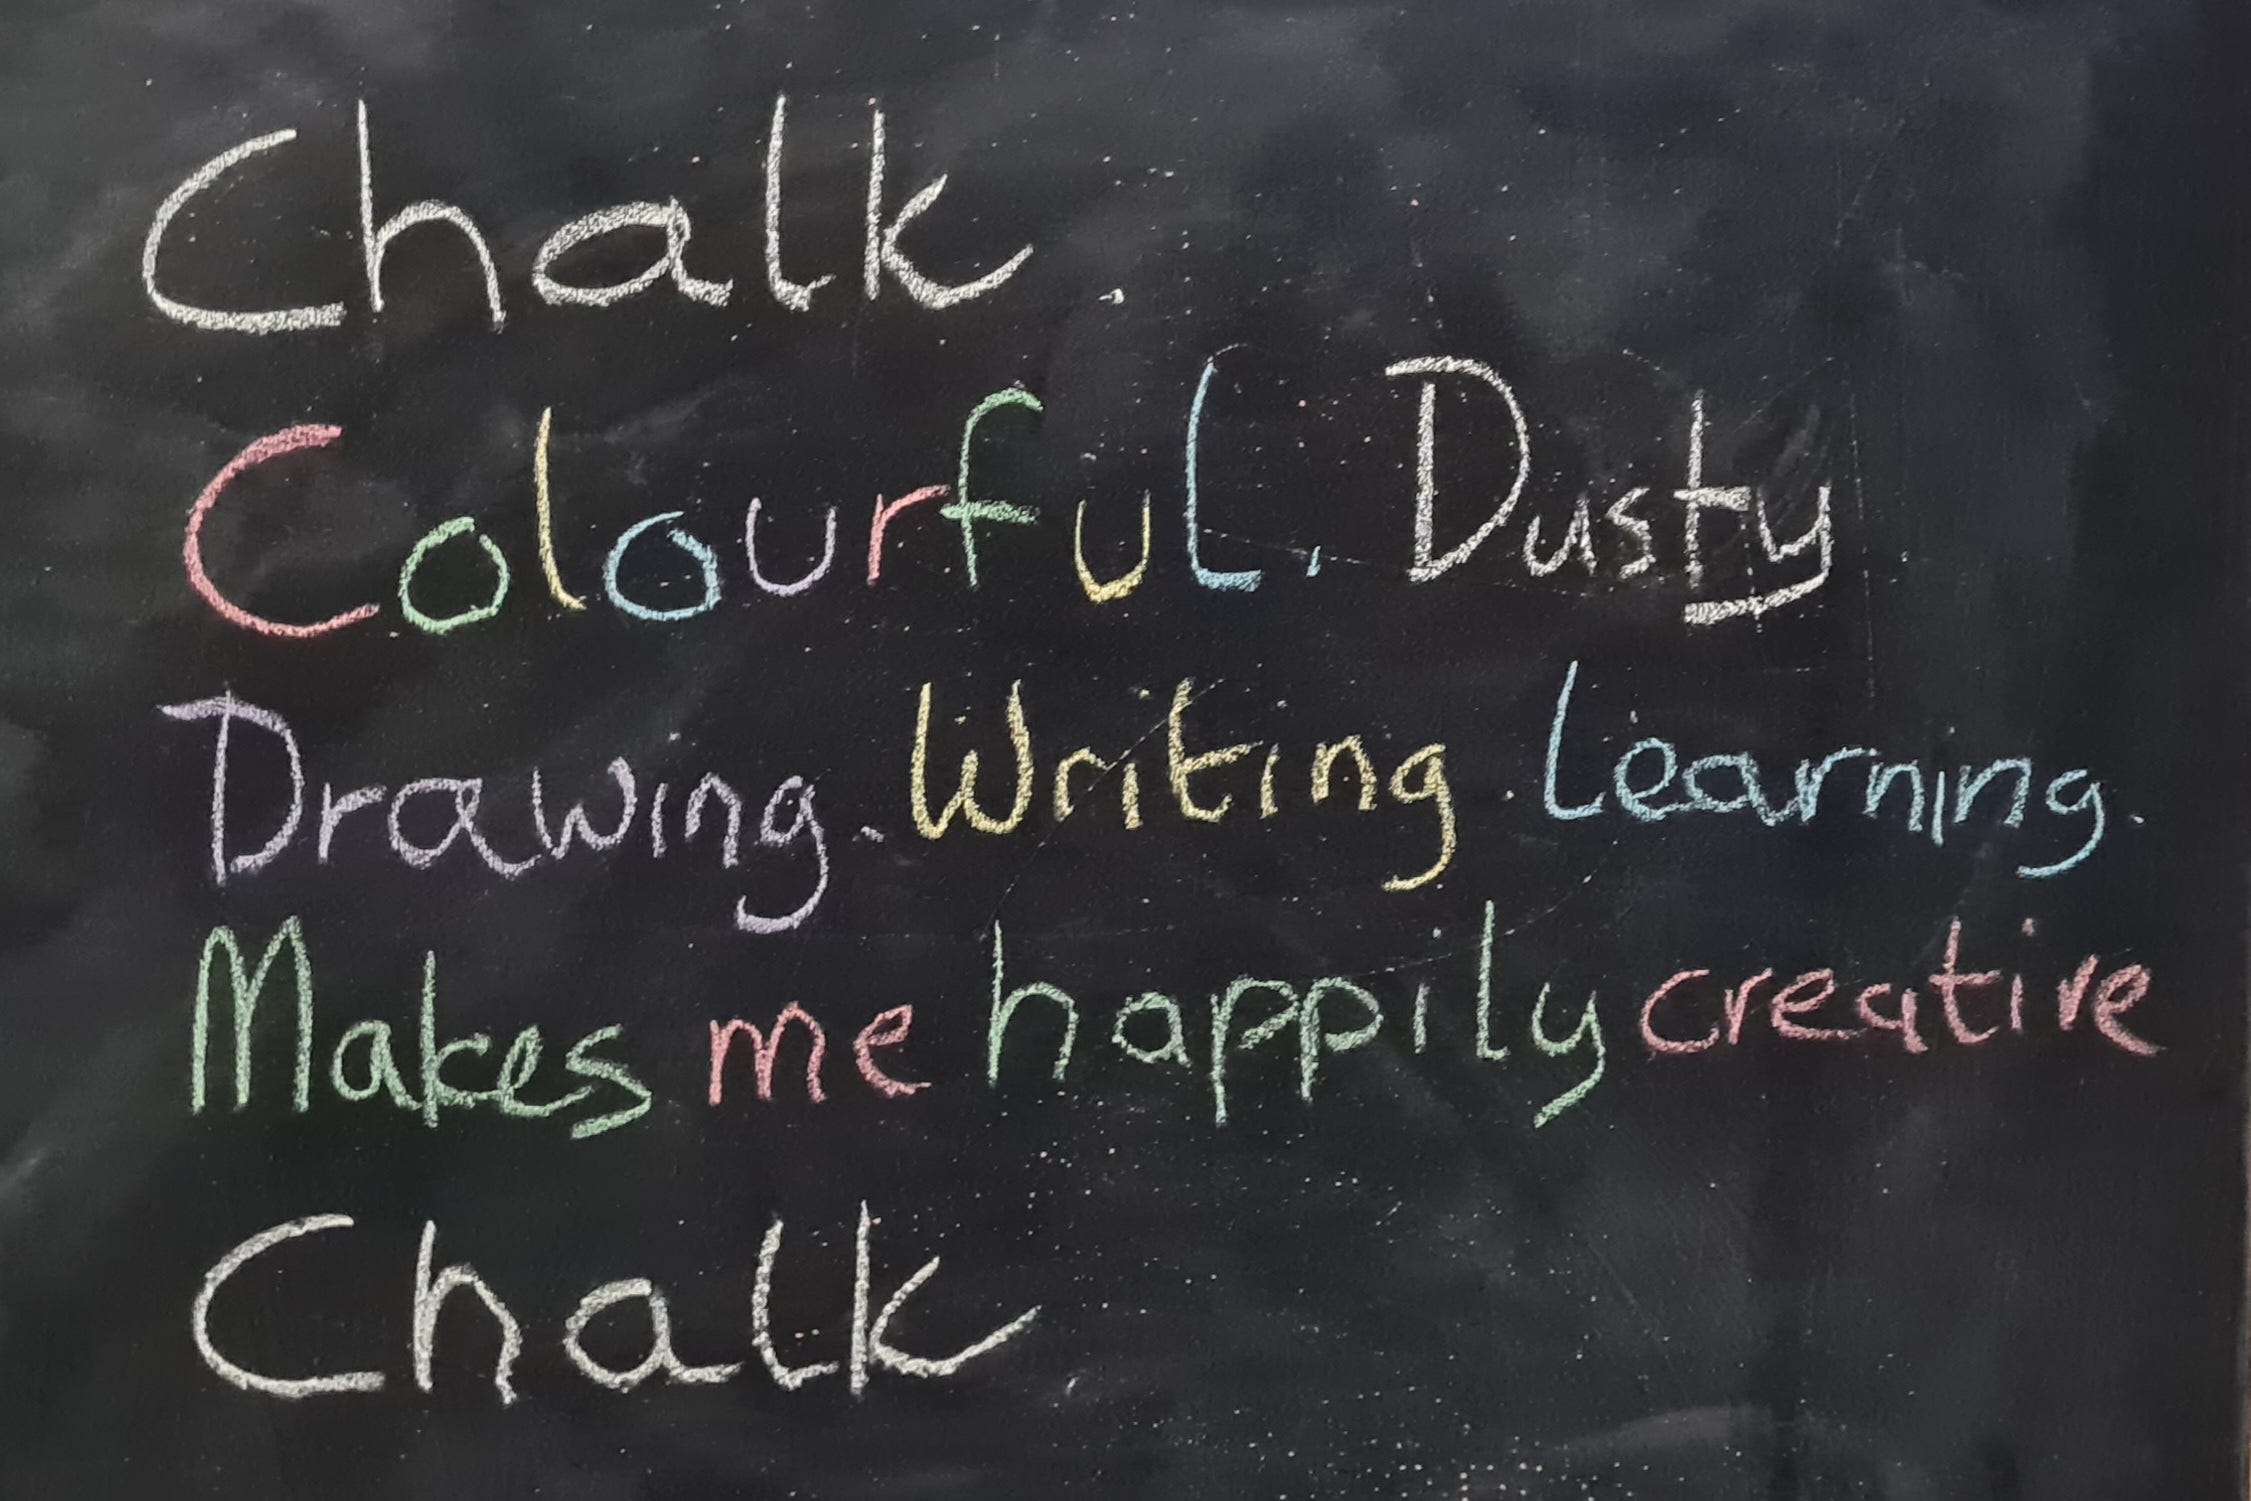 Chalk.
Colourful. Dusty
Drawing. Writing. Learning.
Makes me happily creative
Chalk